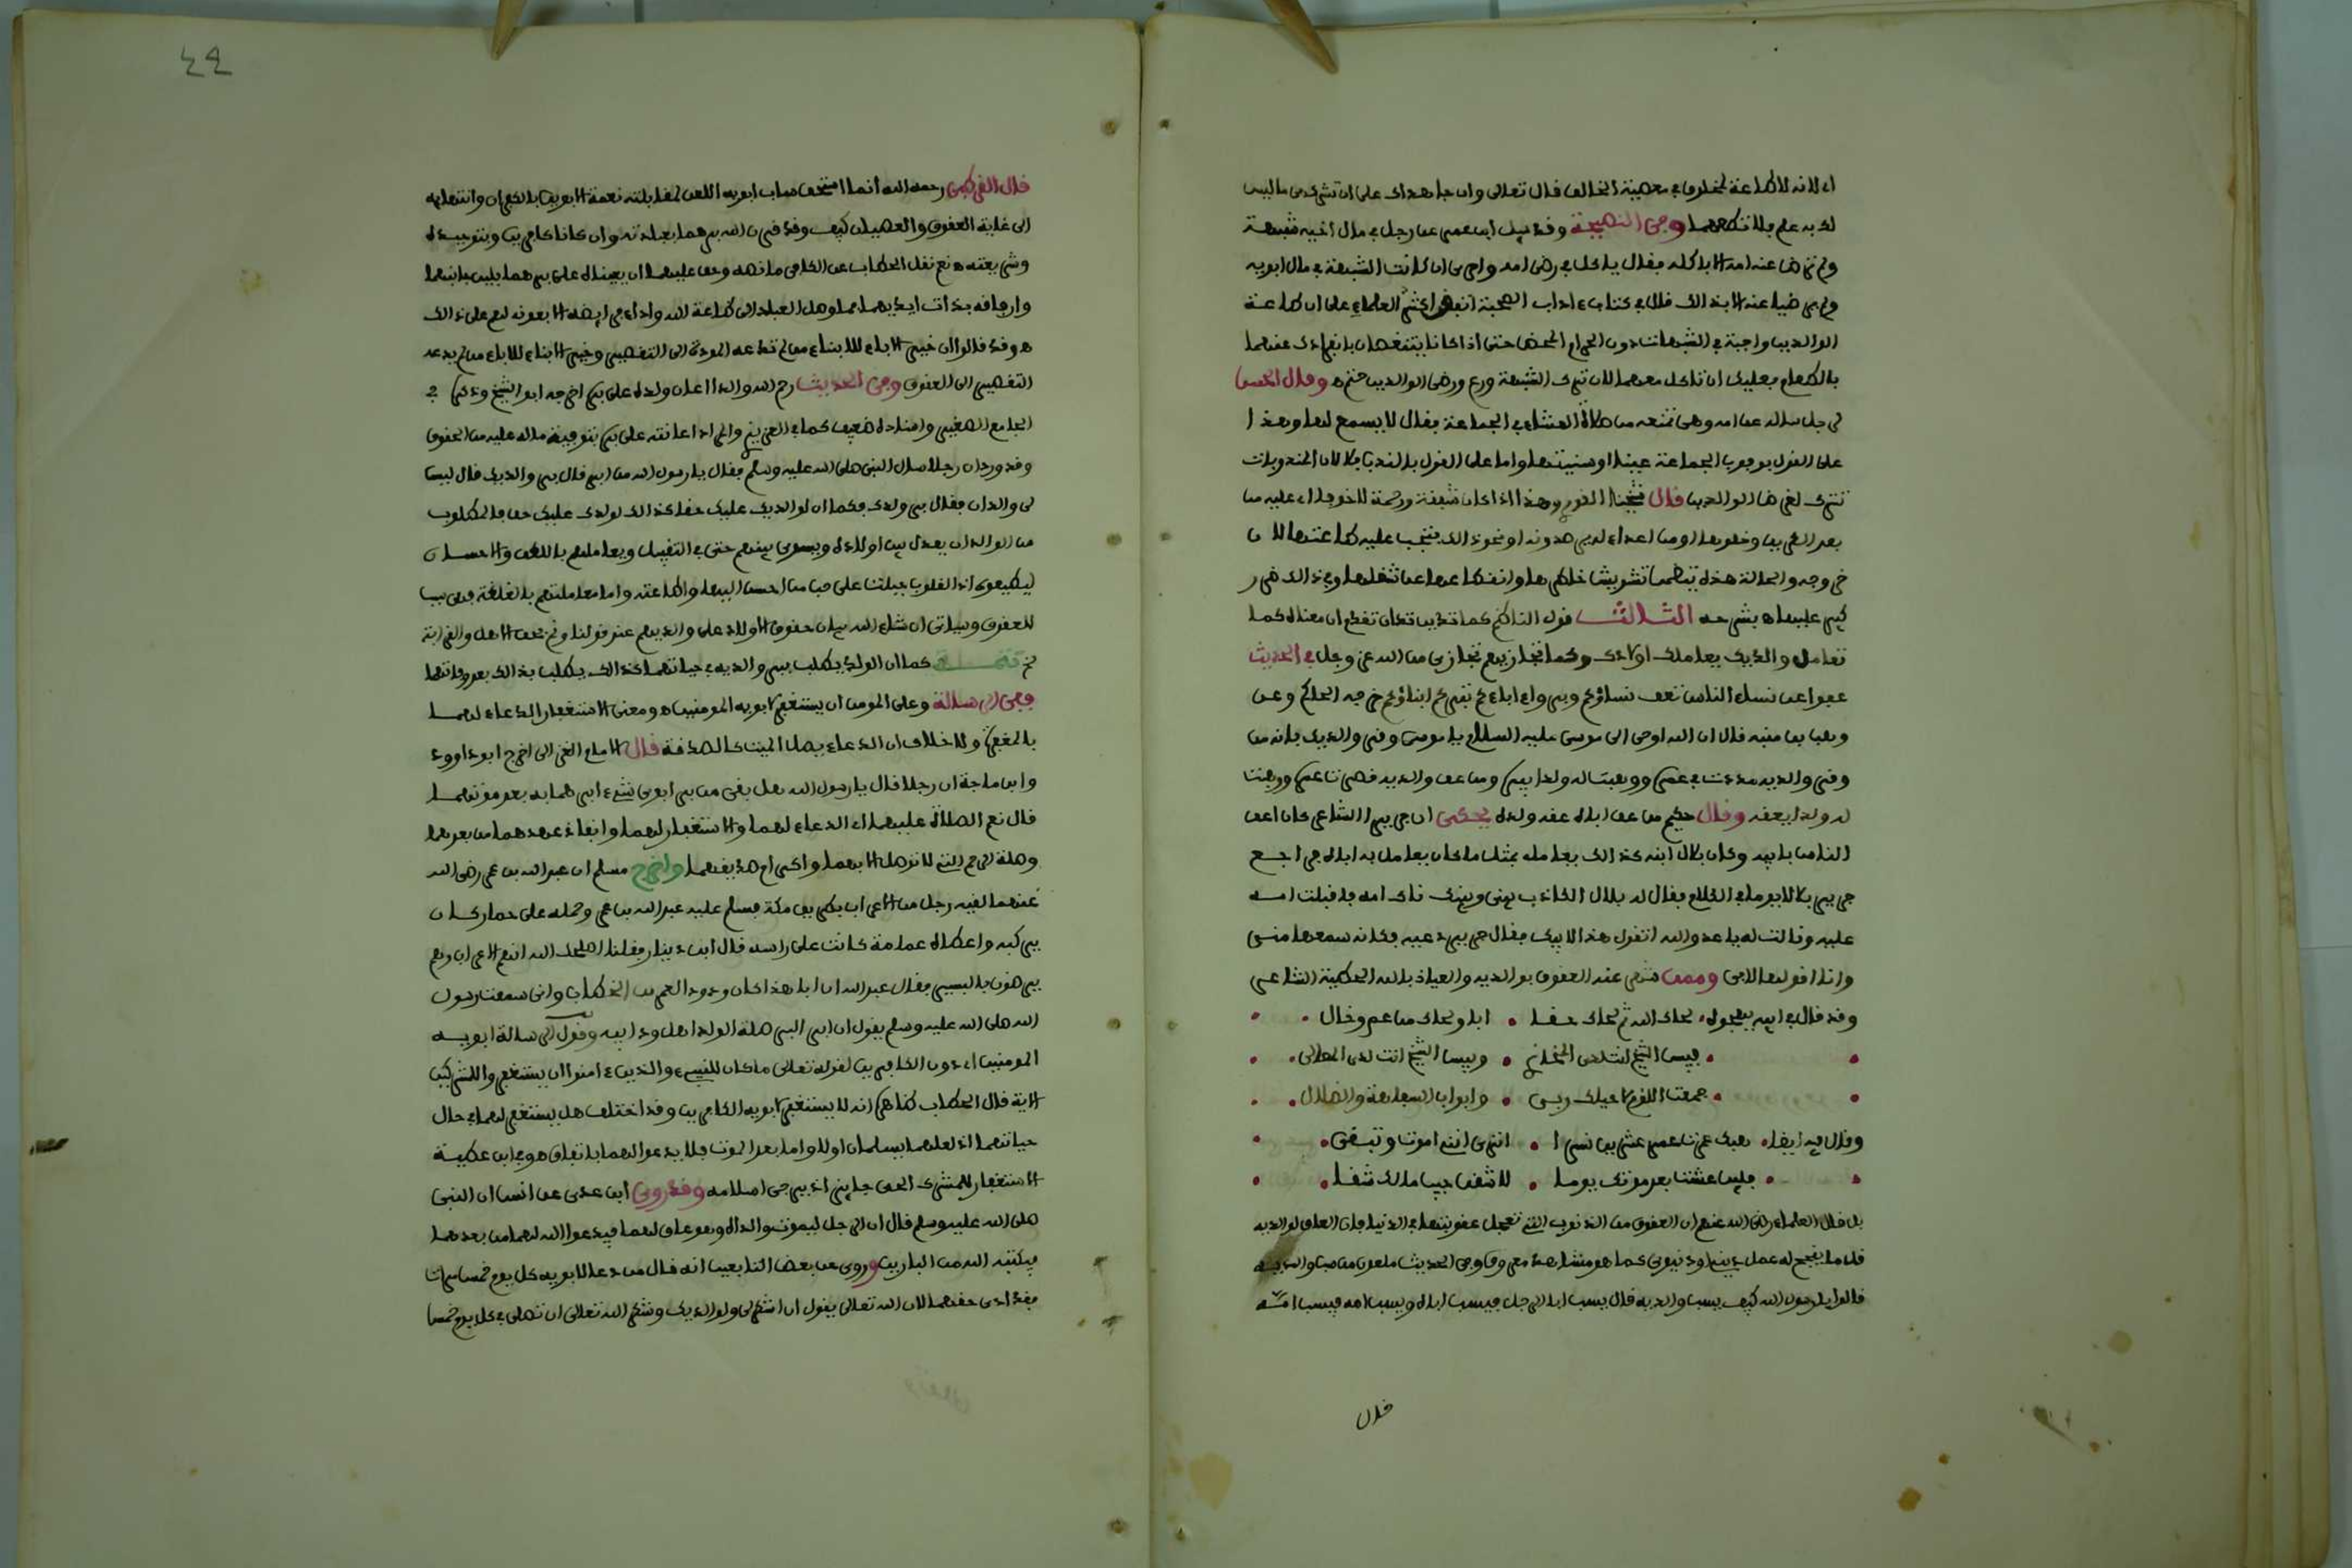 اي لانه لا طاعة لمخلوق في معصية الخالق قال تعالى وان جاهداك على ان تشرك بي ما ليس
لك به علم فلا تطعهما وفي النصيحة وقد سئل ابن عمر عن رجل في مال ابيه شبهة
ولم ترضا عنه امه الا باكله فقال ياكل في رضى امه واحرى ان كانت الشبهة في مال ابويه
ولم يرضيا عنه الا بذالك قال في كتاب ءاداب الصحبة اتفق اكثر العلماء على ان طاعة
الوالدين واجبة في الشبهات دون الحرام المحض حتى اذا كانا يتنغصان بانفرادك عنهما
بالطعام فعليك ان تاكل معهما لان ترك الشبهة ورع ورضى الوالدين حتم وقال الحسن
لرجل ساله عن امه وهي تمنعه من صلاة العشاء في الجماعة فقال لا يسمع لها وهذا
على القول بوجوب الجماعة عينا او سنيتها واما على القول بالندب فلا لان المندوبات
تترك لغرض الوالدين قال شيخنا وهذا اذا كان شفقة ورحمة لا خوفا اي عليه من
خروجه والحالة هذه يتضمن تشويش خاطرها وانقطاعها عن شغلها وفي ذالك ضرر
كبير عليها ه بشرحه الثالث قول الناظم كما تدين تدان تفطع ان معناه كما
تعامل والديك يعاملك اولادك وكما تجازيهم تجازى من الله عز وجل في الحديث
عفوا عن نساء الناس تعف نساؤكم وبروا ءاباءكم تبركم ابناؤكم خرجه الحاكم وعن
وهب بن منبه قال ان الله اوحى الى موسى عليه السلام يا موسى وقر والديك فانه من
وقر والديه مددت في عمره ووهبت له ولدا يبره ومن عق والديه قصرت عمره ووهبت
له ولدا يعقه وقال حكيم من عق اباه عقه ولده يحكى ان جرير الشاعر كان اعق
الناس بابيه وكان بلال ابنه كذالك يعامله بمثل ما كان يعامل به اباه فراجع
جرير بلالا يوما في الكلام فقال له بلال الكاذب بيني وبينك ناك امه فاقبلت امه
عليه وقالت له يا عدو الله اتقول هذا لابيك فقال جرير دعيه فكانه سمعها مني
وانا اقولها لابي وممن اشتهر عنه العقوق بوالديه والعياذ بالله الحطيئة الشاعر
وقد قال في ابيه يهجوه لحاك الله ثم لحاك حقا ابا ولحاك من عم وخال
فبيس الشيخ انت لدى المخازي وبيس الشيخ انت لدى المعالي
جمعت اللؤم لا حياك ربي وابواب السفاهة والضلال
وقال فيه ايضا
فليس عشت بعد موتك يوما لاشقن جيب مالك شقا
بل قال العلماء رضي الله عنهم ان العقوق من الذنوب التي تعجل عقوبتها في الدنيا فان العاق لوالديه
قل ما ينجح له عمل ديني او دنيوي كما هو مشاهد معروف وفي الحديث ملعون من سب والديه
قالوا يا رسول الله كيف يسب والديه قال يسب ابا الرجل فيسب اباه ويسب امه فيسب امه
قال
٤٤
قال القرطبي رحمه الله انما استحق ساب ابويه اللعن لمقابلته نعمة الابوين بالكفران وانتهائه
الى غاية العقوق والعصيان كيف وقد قرن الله برهما بعبادته وان كانا كافرين وبتوحيده
وشريعته ه نع نقل الحطاب عن الكافي ما نصه وحق عليهما ان يعيناه على برهما بلين جانبهما
وارفاقه بذات ايديهما فما وصل العباد الى طاعة الله واداء فرايضه الا بعونه لهم على ذالك
ه وقد قالوا ان خير الاباء للابناء من لم تدعه المودة الى التقصير وخير الابناء للاباء من لم يدعه
التقصير الى العقوق وفي الحديث رحم الله والدا اعان ولده على بره اخرجه ابو الشيخ وذكره في
الجامع الصغير واسناده ضعيف كما في العزيزي والمراد اعانته على بره بتوفيته ماله عليه من الحقوق
وقد ورد ان رجلا سال النبي صلى الله عليه وسلم فقال يا رسول الله من ابر قال بر والديك قال ليس
لي والدان فقال بر ولدك فكما ان لوالديك عليك حقا كذالك لولدك عليك حق فالمطلوب
من الوالد ان يعدل بين اولاده ويسوي بينهم حتى في التقبيل ويعاملهم باللطف والاحسان
ليطيعوه اذ القلوب جبلت على حب من احسن اليها واطاعته واما معاملتهم بالغلظة فهي سبب
للعقوق وسياتي ان شاء الله بيان حقوق الاولاد على والديهم عند قولنا ونم بحق الاهل والقرابة
ثم تتمة كما ان الولد يطلب ببر والديه في حياتهما كذالك يطلب بذالك بعد وفاتهما
ففي الرسالة وعلى المومن ان يستغفر لابويه المومنين ه ومعنى الاستغفار الدعاء لهما
بالمغفرة ولا خلاف ان الدعاء يصل الميت كالصدقة قال الامام الغزالي اخرج ابو داوود
وابن ماجة ان رجلا قال يا رسول الله هل بقي من بر ابوي شيء ابرهما به بعد موتهما
قال نعم الصلاة عليهما اي الدعاء لهما والاستغفار لهما وانفاذ عهدهما من بعدهما
وصلة الرحم التي لا توصل الا بهما واكرام صديقهما واخرج مسلم ان عبد الله بن عمر رضي الله
عنهما لقيه رجل من الاعراب بطريق مكة فسلم عليه عبد الله بن عمر وحمله على حمار كان
يركبه واعطاه عمامة كانت على راسه قال ابن دينار فقلنا اصلحك الله انهم الاعراب وهم
يرضون باليسير فقال عبد الله ان ابا هذا كان ودود العمر بن الخطاب واني سمعت رسول
الله صلى الله عليه وسلم يقول ان ابر البر صلة الولد اهل ود ابيه وقول الرسالة ابويه
المومنين اي دون الكافرين لقوله تعالى ما كان للنبيء والذين ءامنوا ان يستغفروا للمشركين
الاية قال الحطاب ظاهره انه لا يستغفر لابويه الكافرين وقد اختلف هل يستغفر لهما في حال
حياتهما اذ لعلهما يسلمان اولا واما بعد الموت فلا يدعو لهما باتفاق ه وفي ابن عطية
الاستغفار للمشرك الحي جايز اذ يرجى اسلامه وقد روى ابن عدي عن انس ان النبي
صلى الله عليه وسلم قال ان الرجل ليموت والداه وهو عاق لهما فيدعوا الله لهما من بعدهما
فيكتبه الله من البارين وروي عن بعض التابعين انه قال من دعا لابويه كل يوم خمس مرات
فقد ادى حقهما لان الله تعالى يقول ان اشكر لي ولوالديك وشكر الله تعالى ان تصلى في كل يوم خمسا